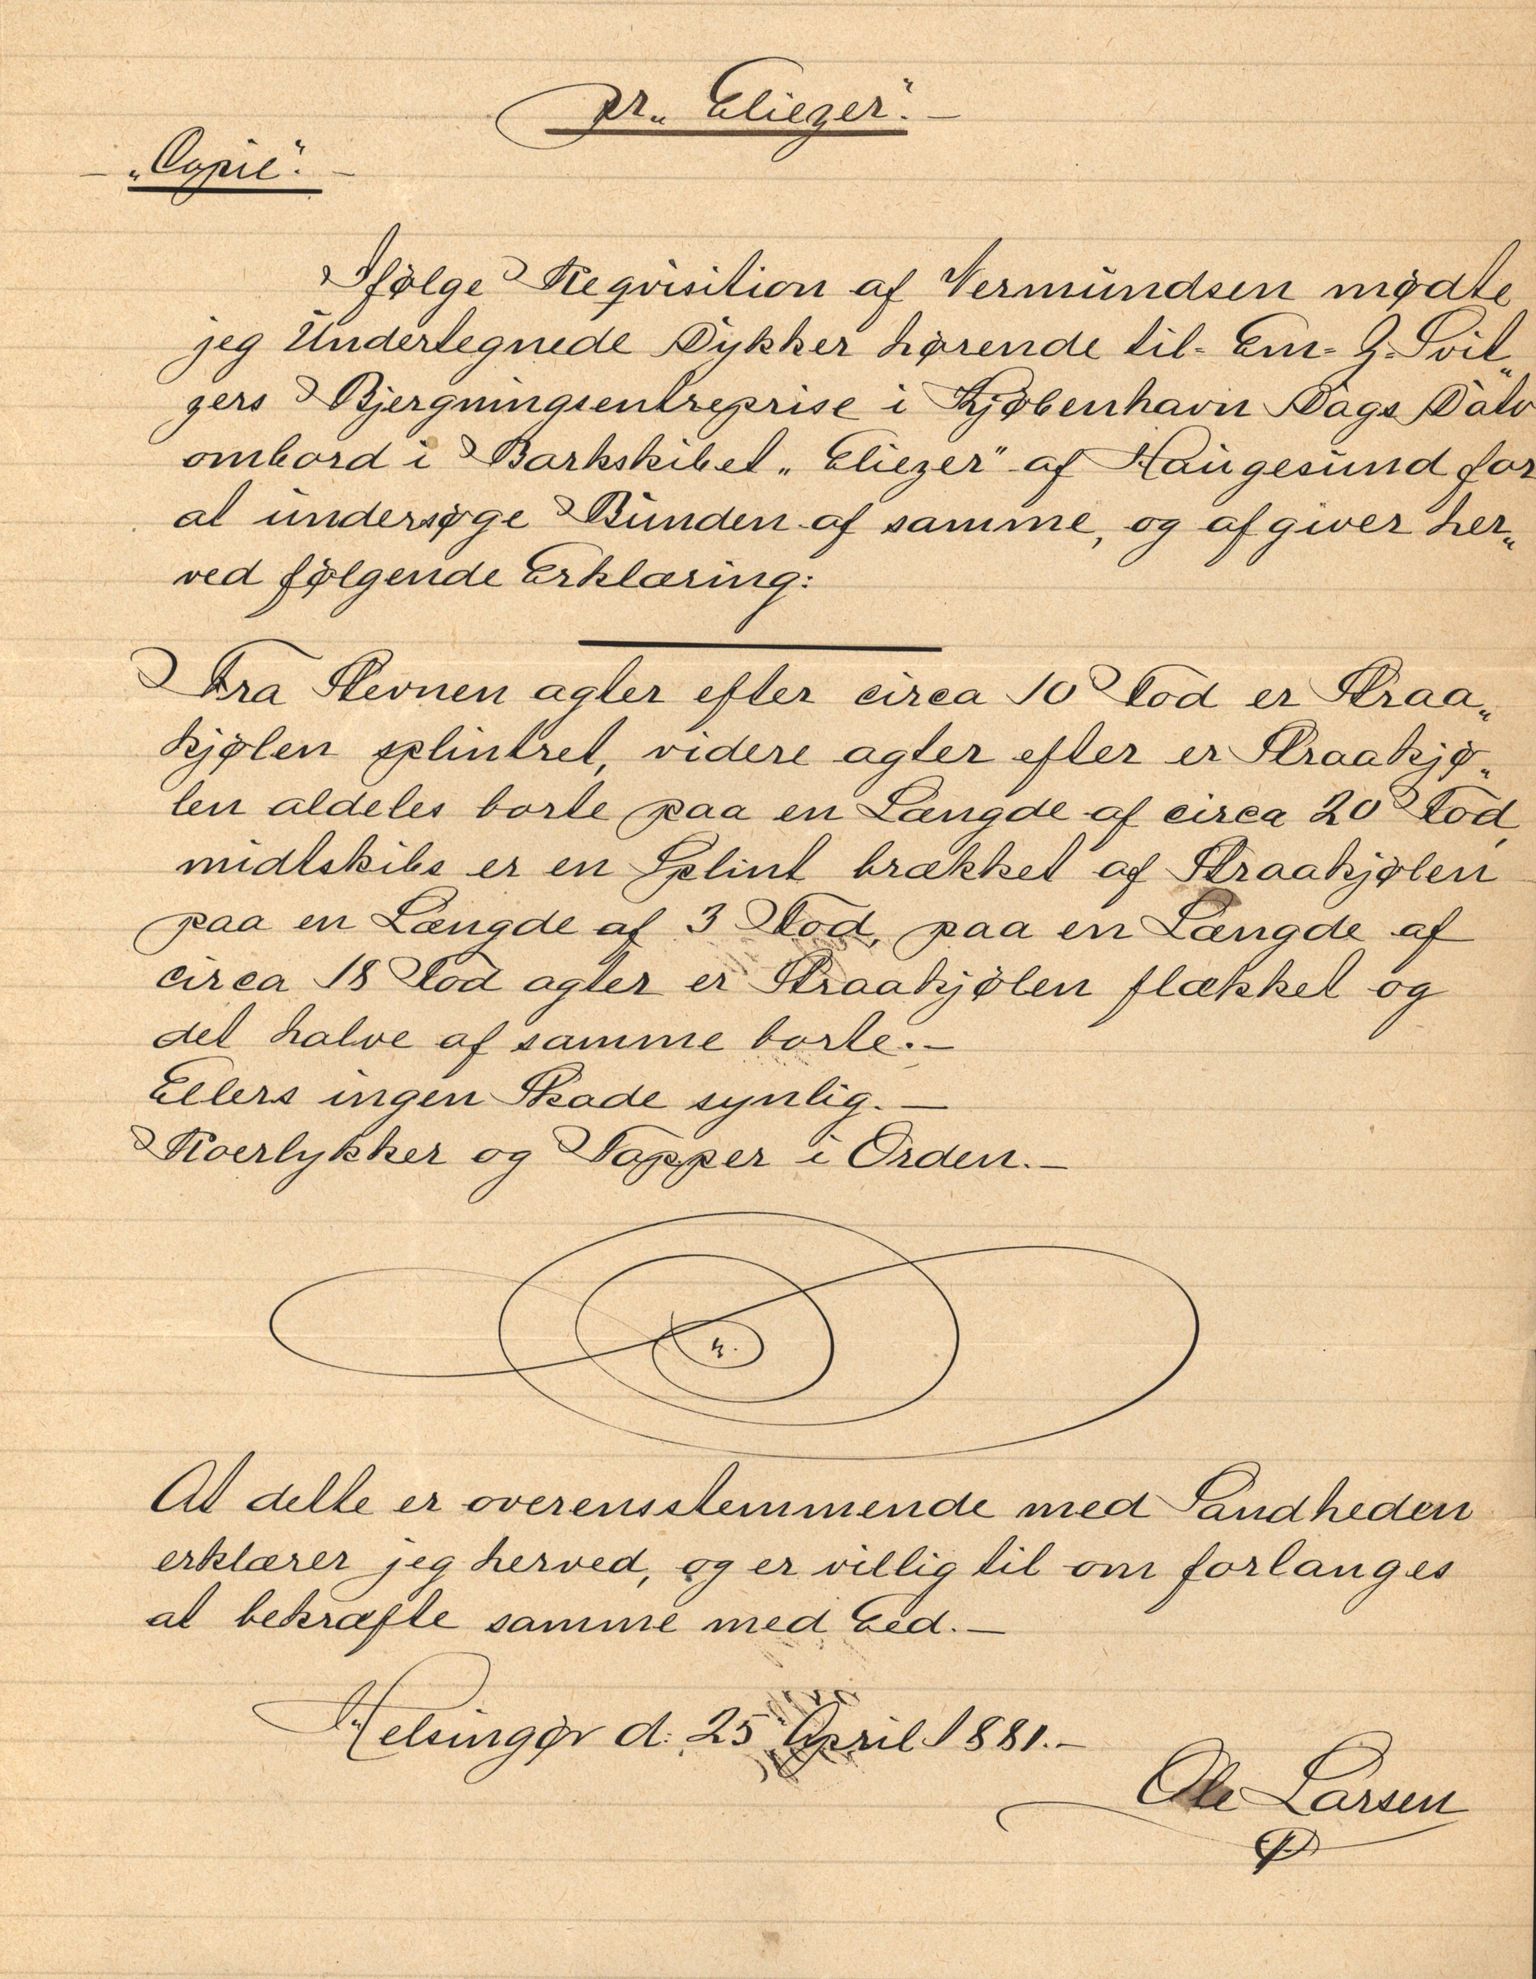 pr„ Eliezer".-
- „Copie". -
Ifølge Reqvisition af Vermundsen mødte
jeg Undertegnede Dykker hørende til- Em= Z. Svit„
zers Bjergningsentreprise i Kjøbenhavn Dags Dato
ombord i Barkskibet „Eliezer" af Haugesund for
at undersøge Bunden af samme, og afgiver her„
ved følgende Erklæring:
Fra Stevnen agter efter circa 10 Fod er Straa„
kjølen splintret, videre agter efter er Straakjø„
len aldeles borte paa en Længde af circa 20 Fod,
midtskibs er en Splint brækket af Straakjølen
paa en Længde af 3 Fod, paa en Længde af
circa 18 Fod agter er Straakjølen flækket og
det halve af samme borte.-
Ellers ingen Skade synlig.-
Roerlykker og Tapper i Orden.-
At dette er overensstemmende med Sandheden
erklærer jeg herved, og er villig til om forlanges
at bekræfte samme med Eed.-
Helsingør d: 25 April 1881.-
Ole Larsen